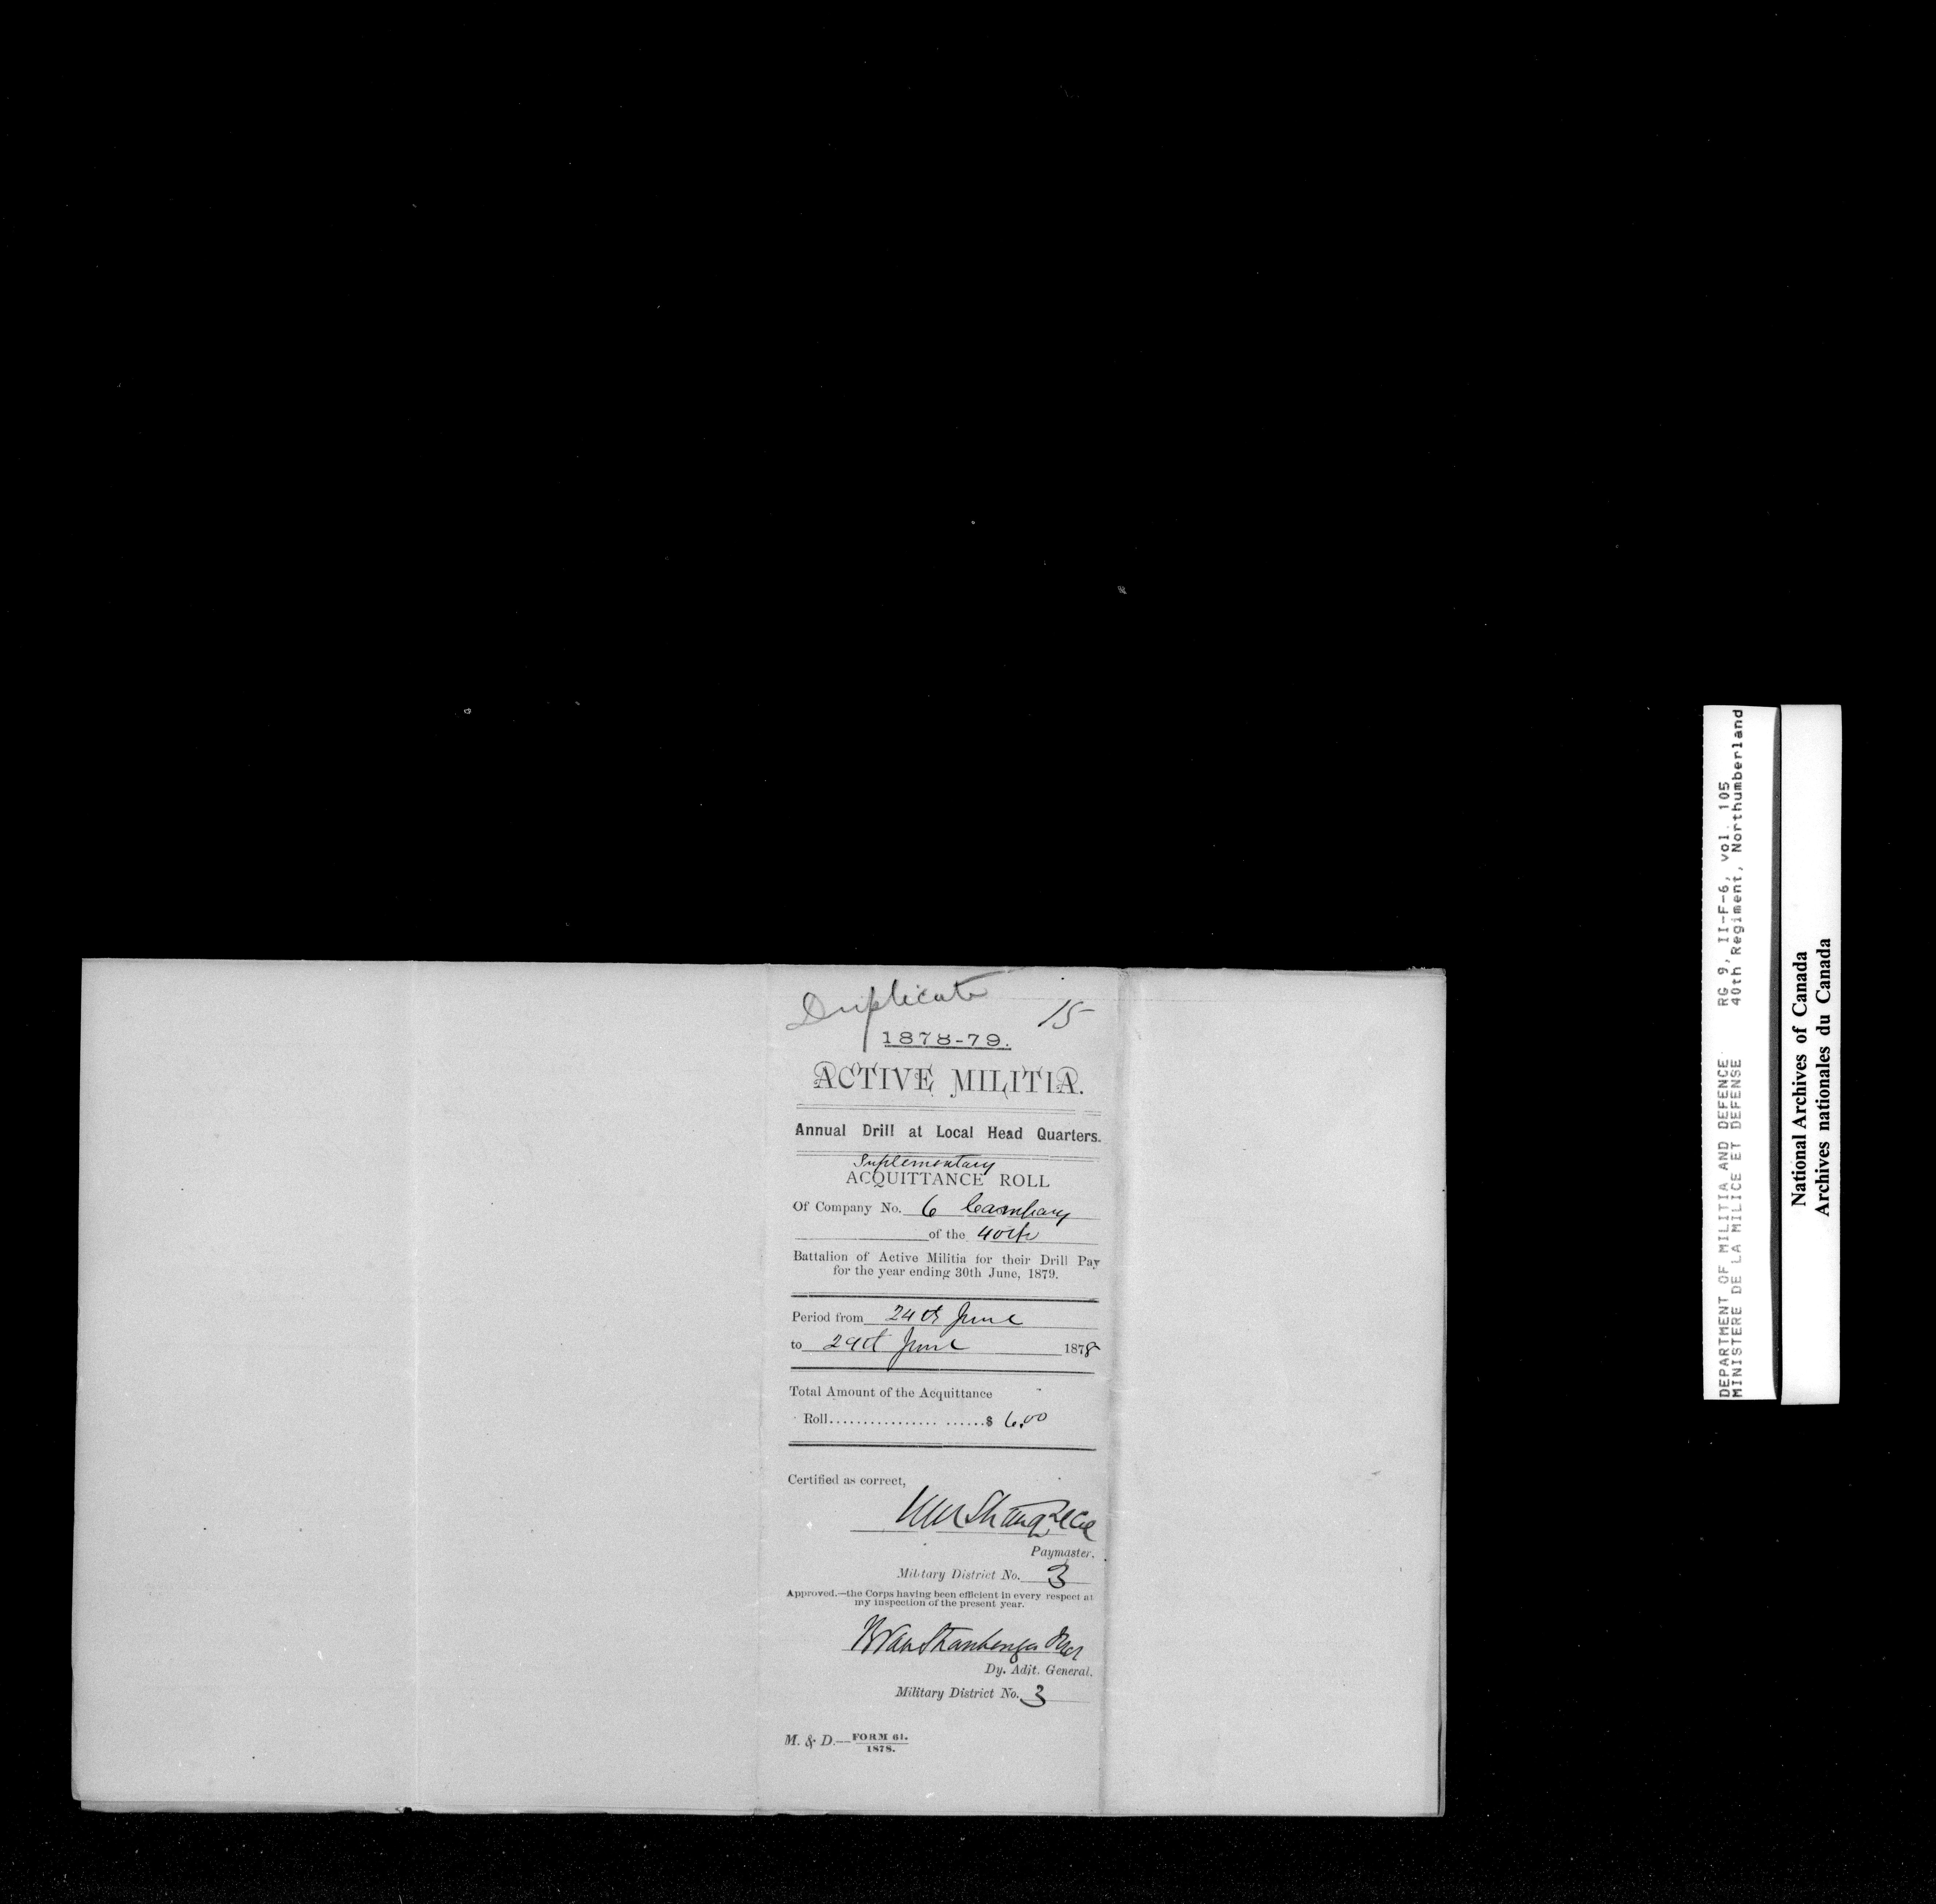 Duplicate
15
1878-79.
ACTIVE MILITIA.
Annual Drill at Local Head Quarters.
Suplementary
ACQUITTANCE ROLL
Of Company No. 6 Company
of the 40th
Battalion of Active Militia for their Drill Pay
for the year ending 30th June, 1879.
Period from 24th June
to 29th June 1878
Total Amount of the Acquittance
Roll................ ......$ 6.00
Certified as correct,
Paymaster.
Military District No. 3
Approved.—the Corps having been efficient in every respect at
my inspection of the present year.
Dy. Adjt. General.
Military District No. 3
M. & D.—FORM 61.
1878.
DEPARTMENT OF MILITIA AND DEFENCE RG 9, II-F-6, vol. 105
MINISTERE DE LA MILICE ET DEFENSE 40th Regiment, Northumberland
National Archives of Canada
Archives nationales du Canada